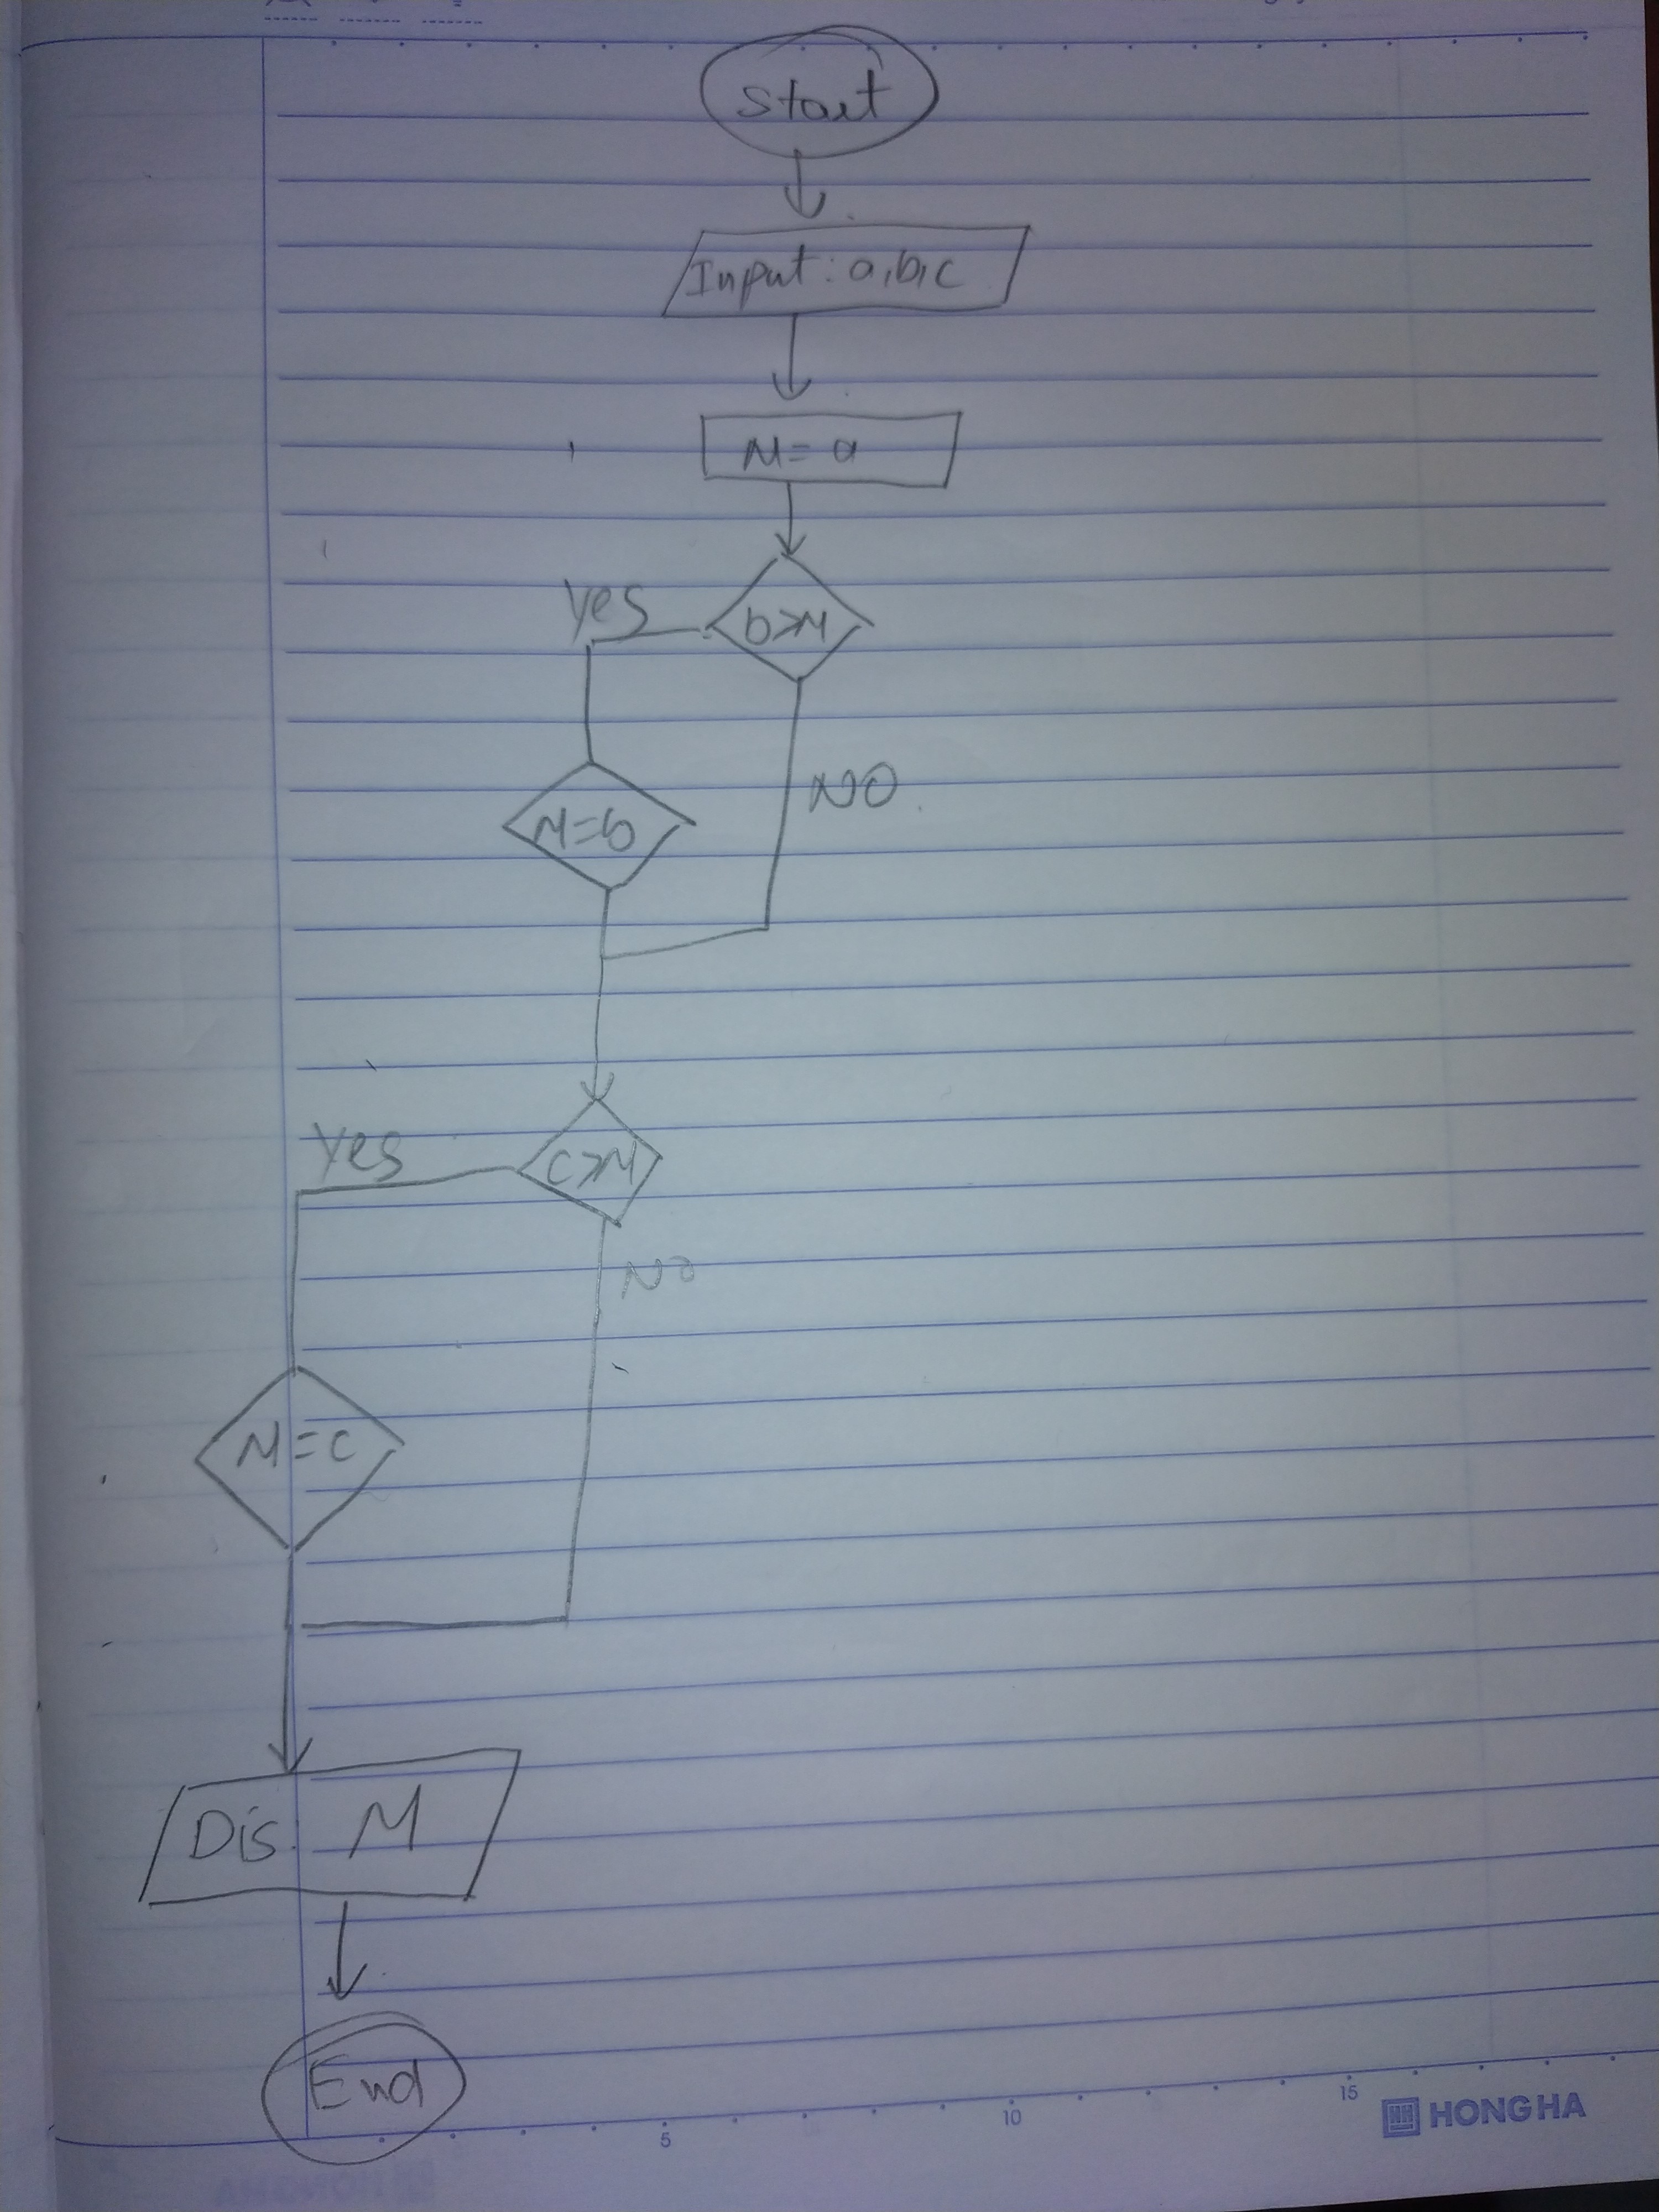 Start
Input: a,b,c
M = a
b>M
Yes
NO
M=b
c>M
Yes
NO
M=c
Dis. M
End
5
10
15
HONG HA